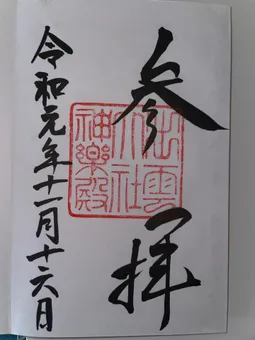 参拝
出雲
大社
神樂殿
令和元年十一月十六日